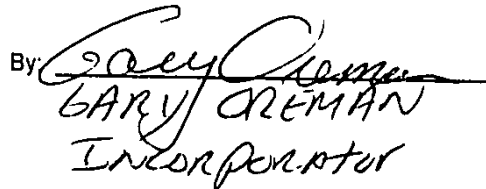 By: Gary Oreman
GARY OREMAN
INCORPORATOR